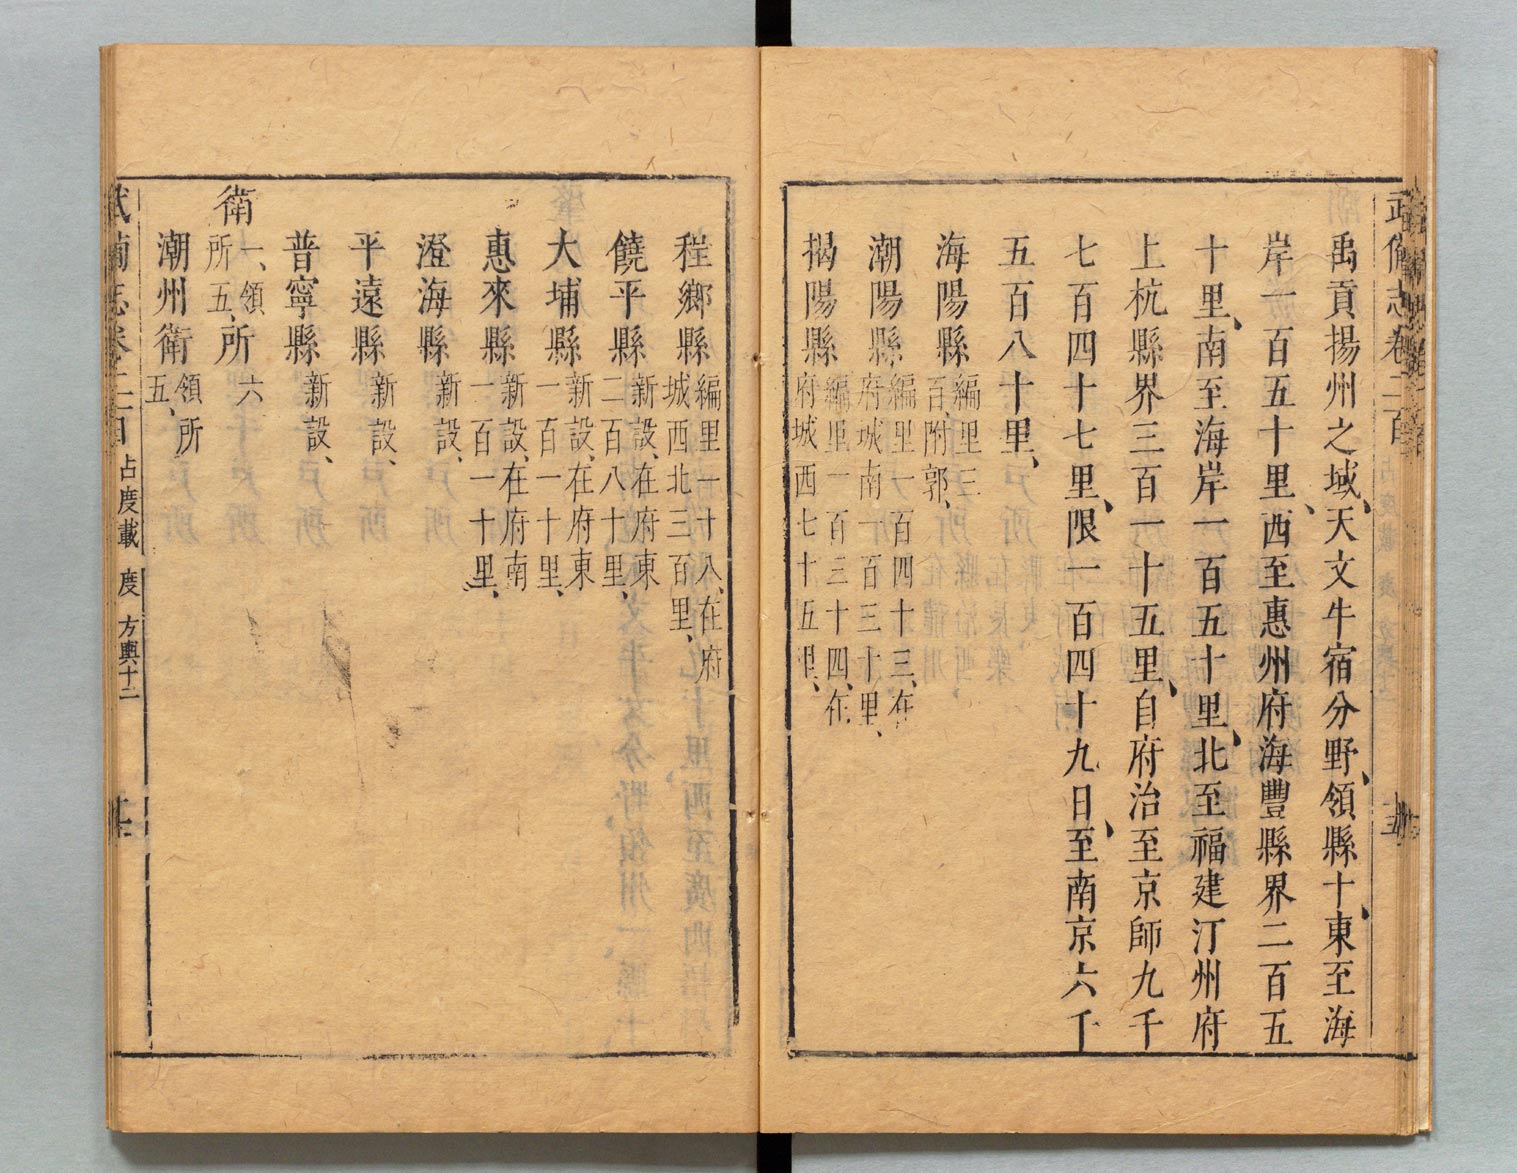 武備志卷二百
禹貢揚州之域、天文牛宿分野、領縣十、東至海
岸一百五十里、西至惠州府海豐縣界二百五
十里、南至海岸一百五十里、北至福建汀州府
上杭縣界三百一十五里、自府治至京師九千
七百四十七里、限一百四十九日、至南京六千
五百八十里、
海陽縣編里三
百、附郭、
潮陽縣編里一百四十三、在
府城南一百三十里、
揭陽縣編里一百三十四、在
府城西七十五里、
程鄉縣編里一十八、在府
城西北三百里、
饒平縣新設、在府東
二百八十里、
大埔縣新設、在府東
一百一十里、
惠來縣新設、在府南
一百一十里、
澄海縣新設、
平遠縣新設、
普寧縣新設、
衛一、領
所五、所六
潮州衛領所
五、
占度載 度 方輿十二